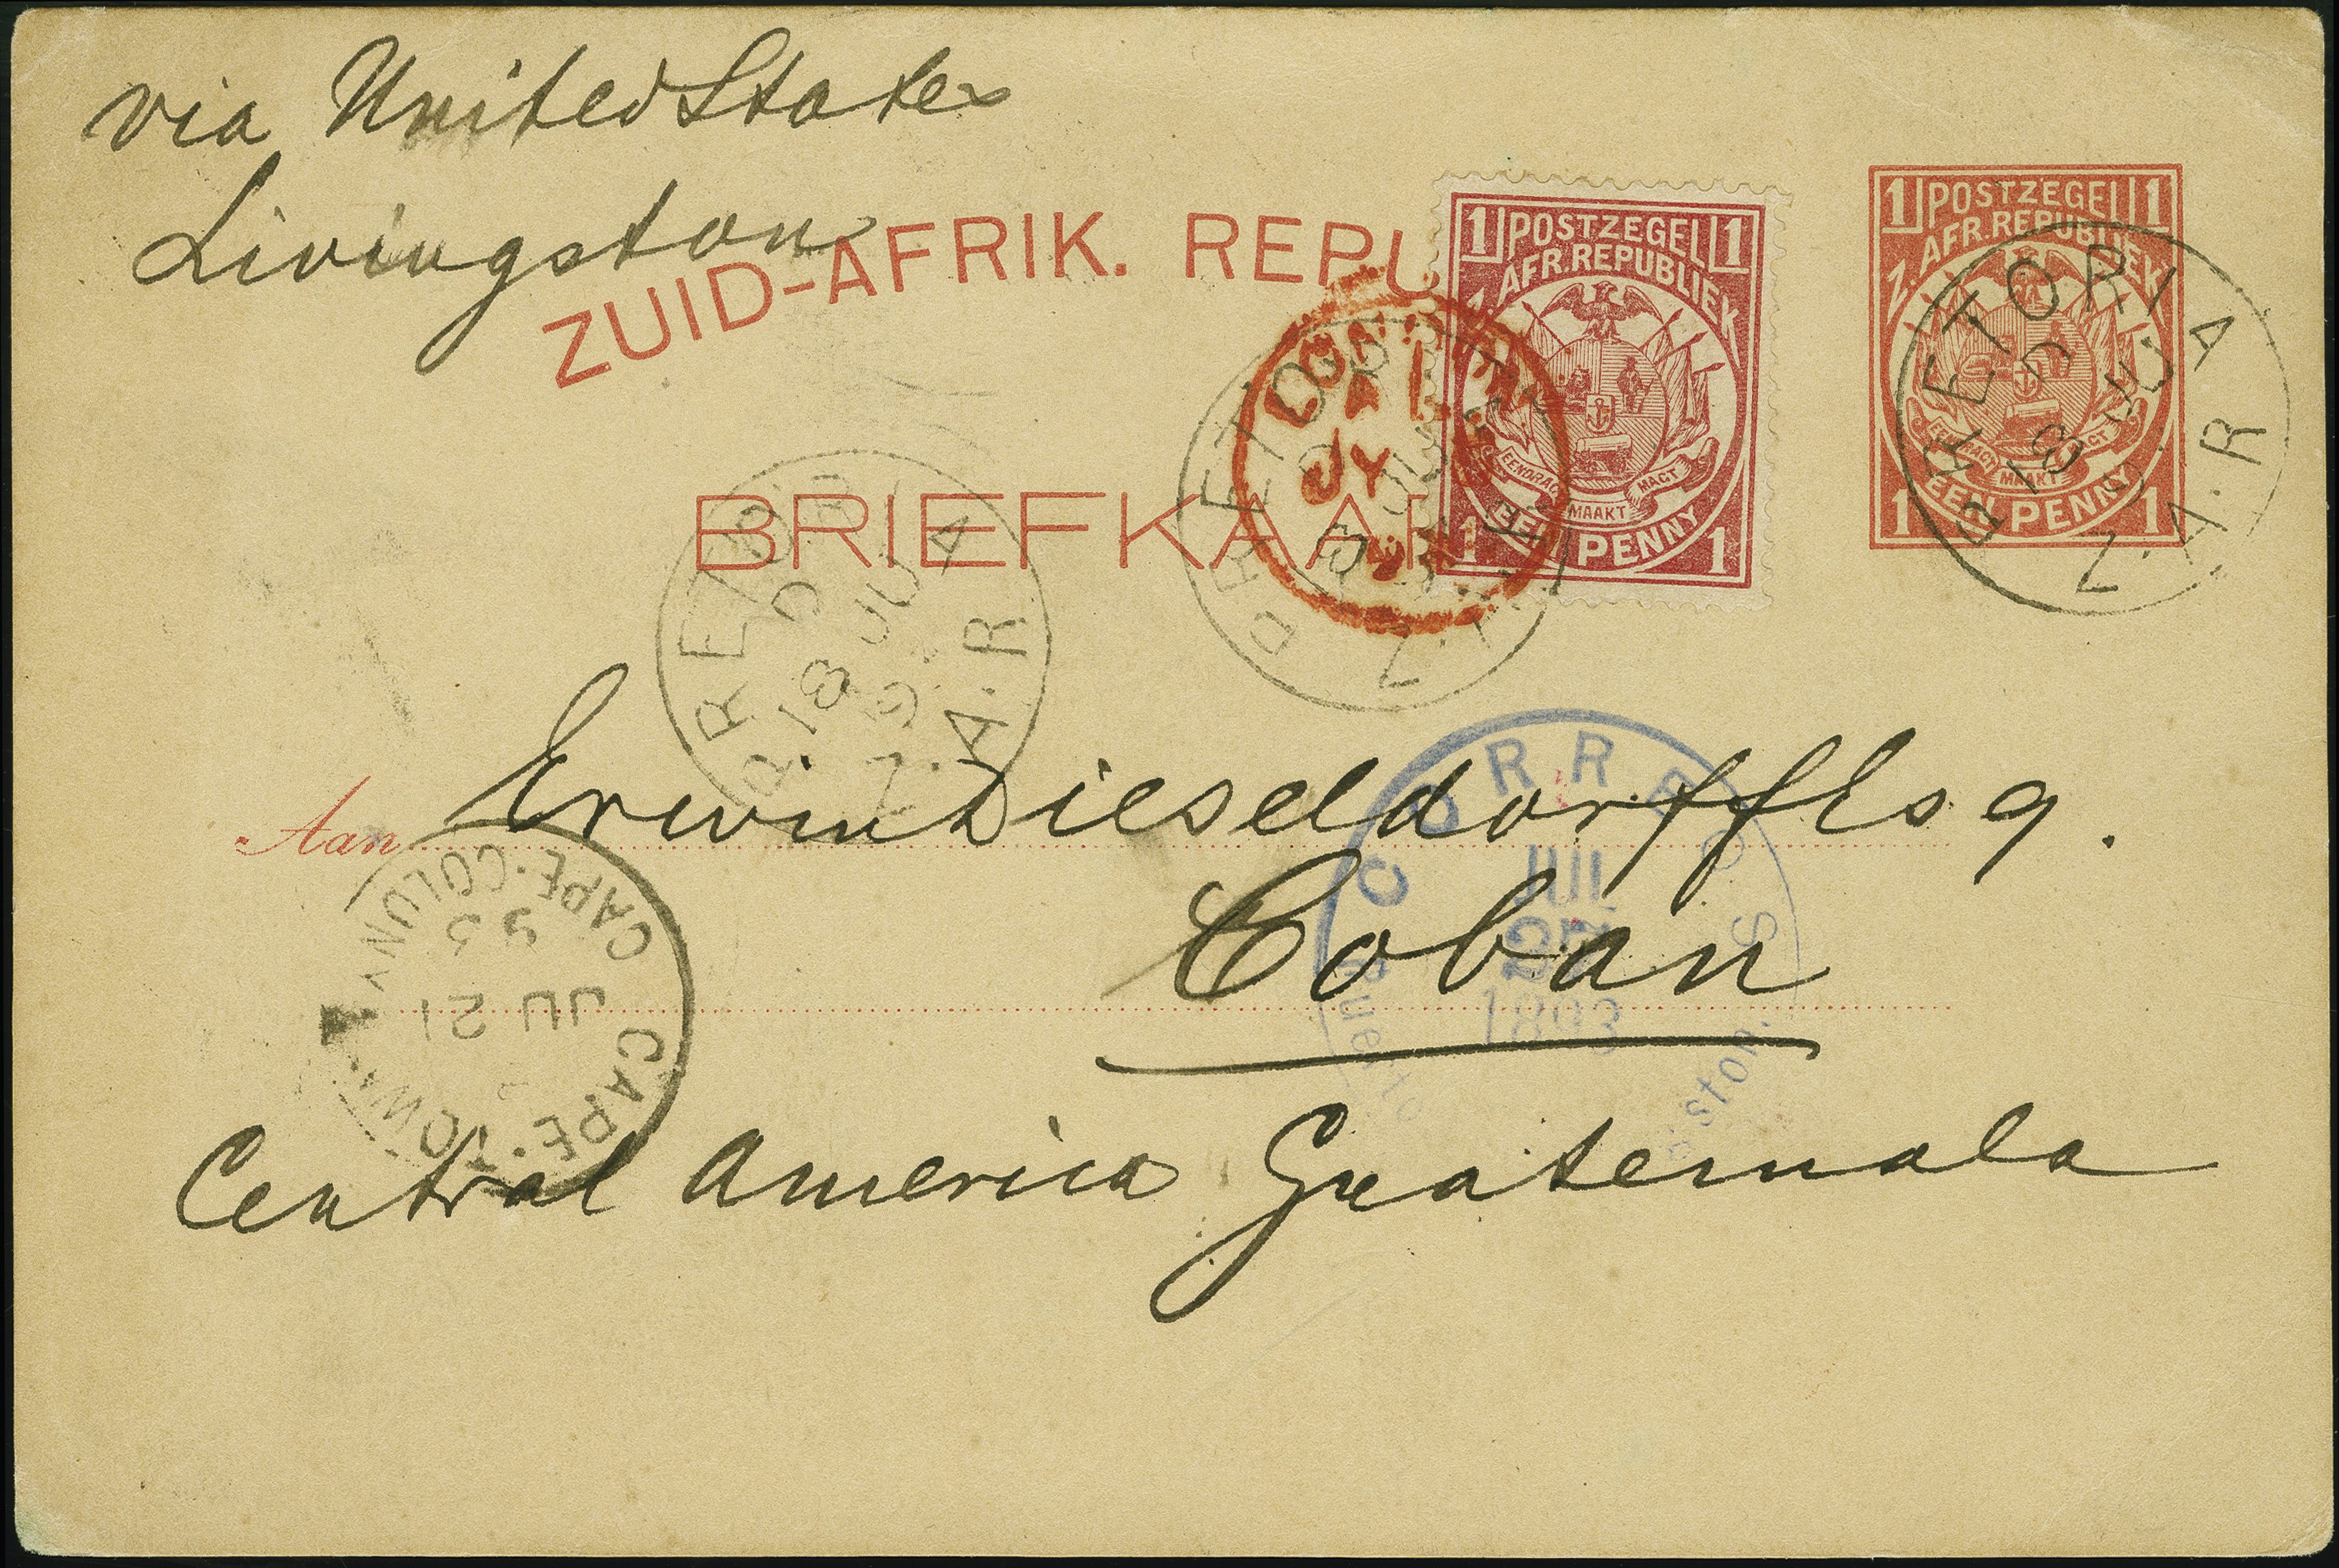 via United States
Livingston
ZUID-AFRIK. REPU
BRIEFKAAR
1 POSTZEGEL 1
Z. AFR. REPUBLIEK
EENDRAGT MAAKT MAGT
EEN PENNY
1 1
1 POSTZEGEL 1
AFR. REPUBLIEK
EENDRAGT MAAKT MAGT
EEN PENNY
1 1
PRETORIA
18 JUL
Z.A.R
PRETORIA
18 JUL
Z.A.R
CORREOS
JUL
1893
Puerto
Aan Erwin Dieseldorff Esq.
Coban
Central America Guatemala
CAPE·TOWN·
JU 21
93
CAPE·COLONY